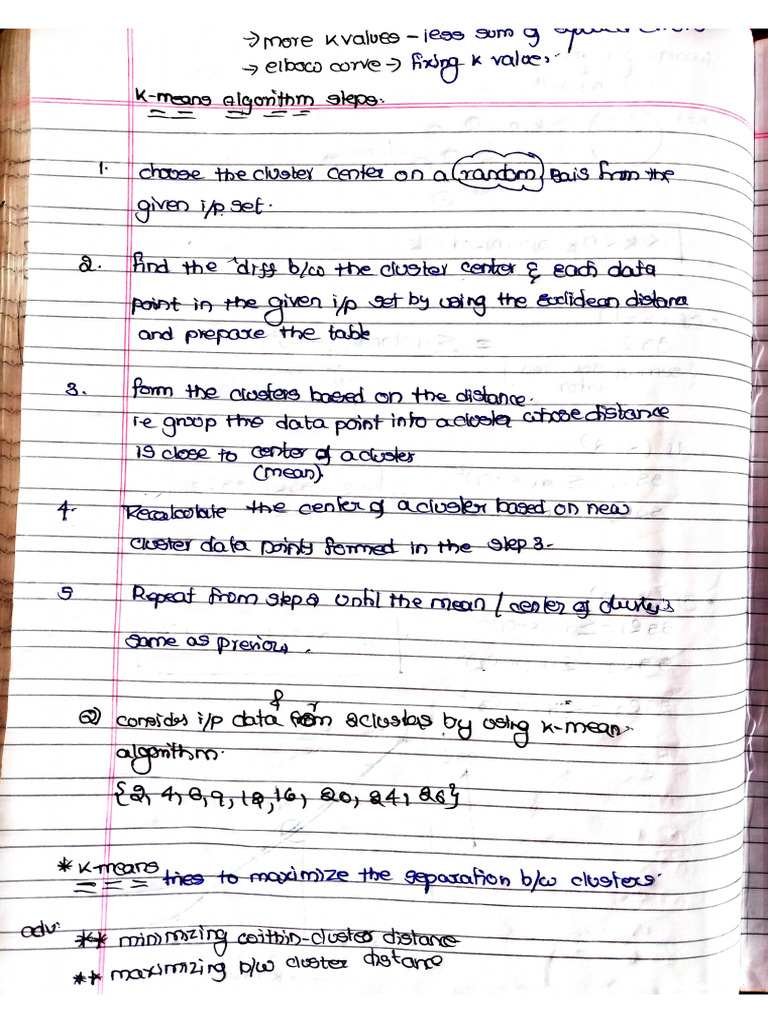 → more K values – less sum of
→ elbow curve → fixing K values.
K-means algorithm steps.
1. choose the cluster center on a random basis from the
given i/p set.
2. find the diff b/w the cluster center & each data
point in the given i/p set by using the Euclidean distance
and prepare the table
3. form the clusters based on the distance.
i.e group the data point into a cluster whose distance
is close to center of a cluster
(mean).
4. Recalculate the center of a cluster based on new
cluster data points formed in the step 3.
5 Repeat from step 2 until the mean / center of cluster is
same as previous.
Q) consider i/p data form 2 clusters by using K-mean
algorithm.
{2, 4, 8, 9, 12, 16, 20, 24, 26}
* K-means tries to maximize the separation b/w clusters.
adv: ** minimizing within-cluster distance
** maximizing b/w cluster distance